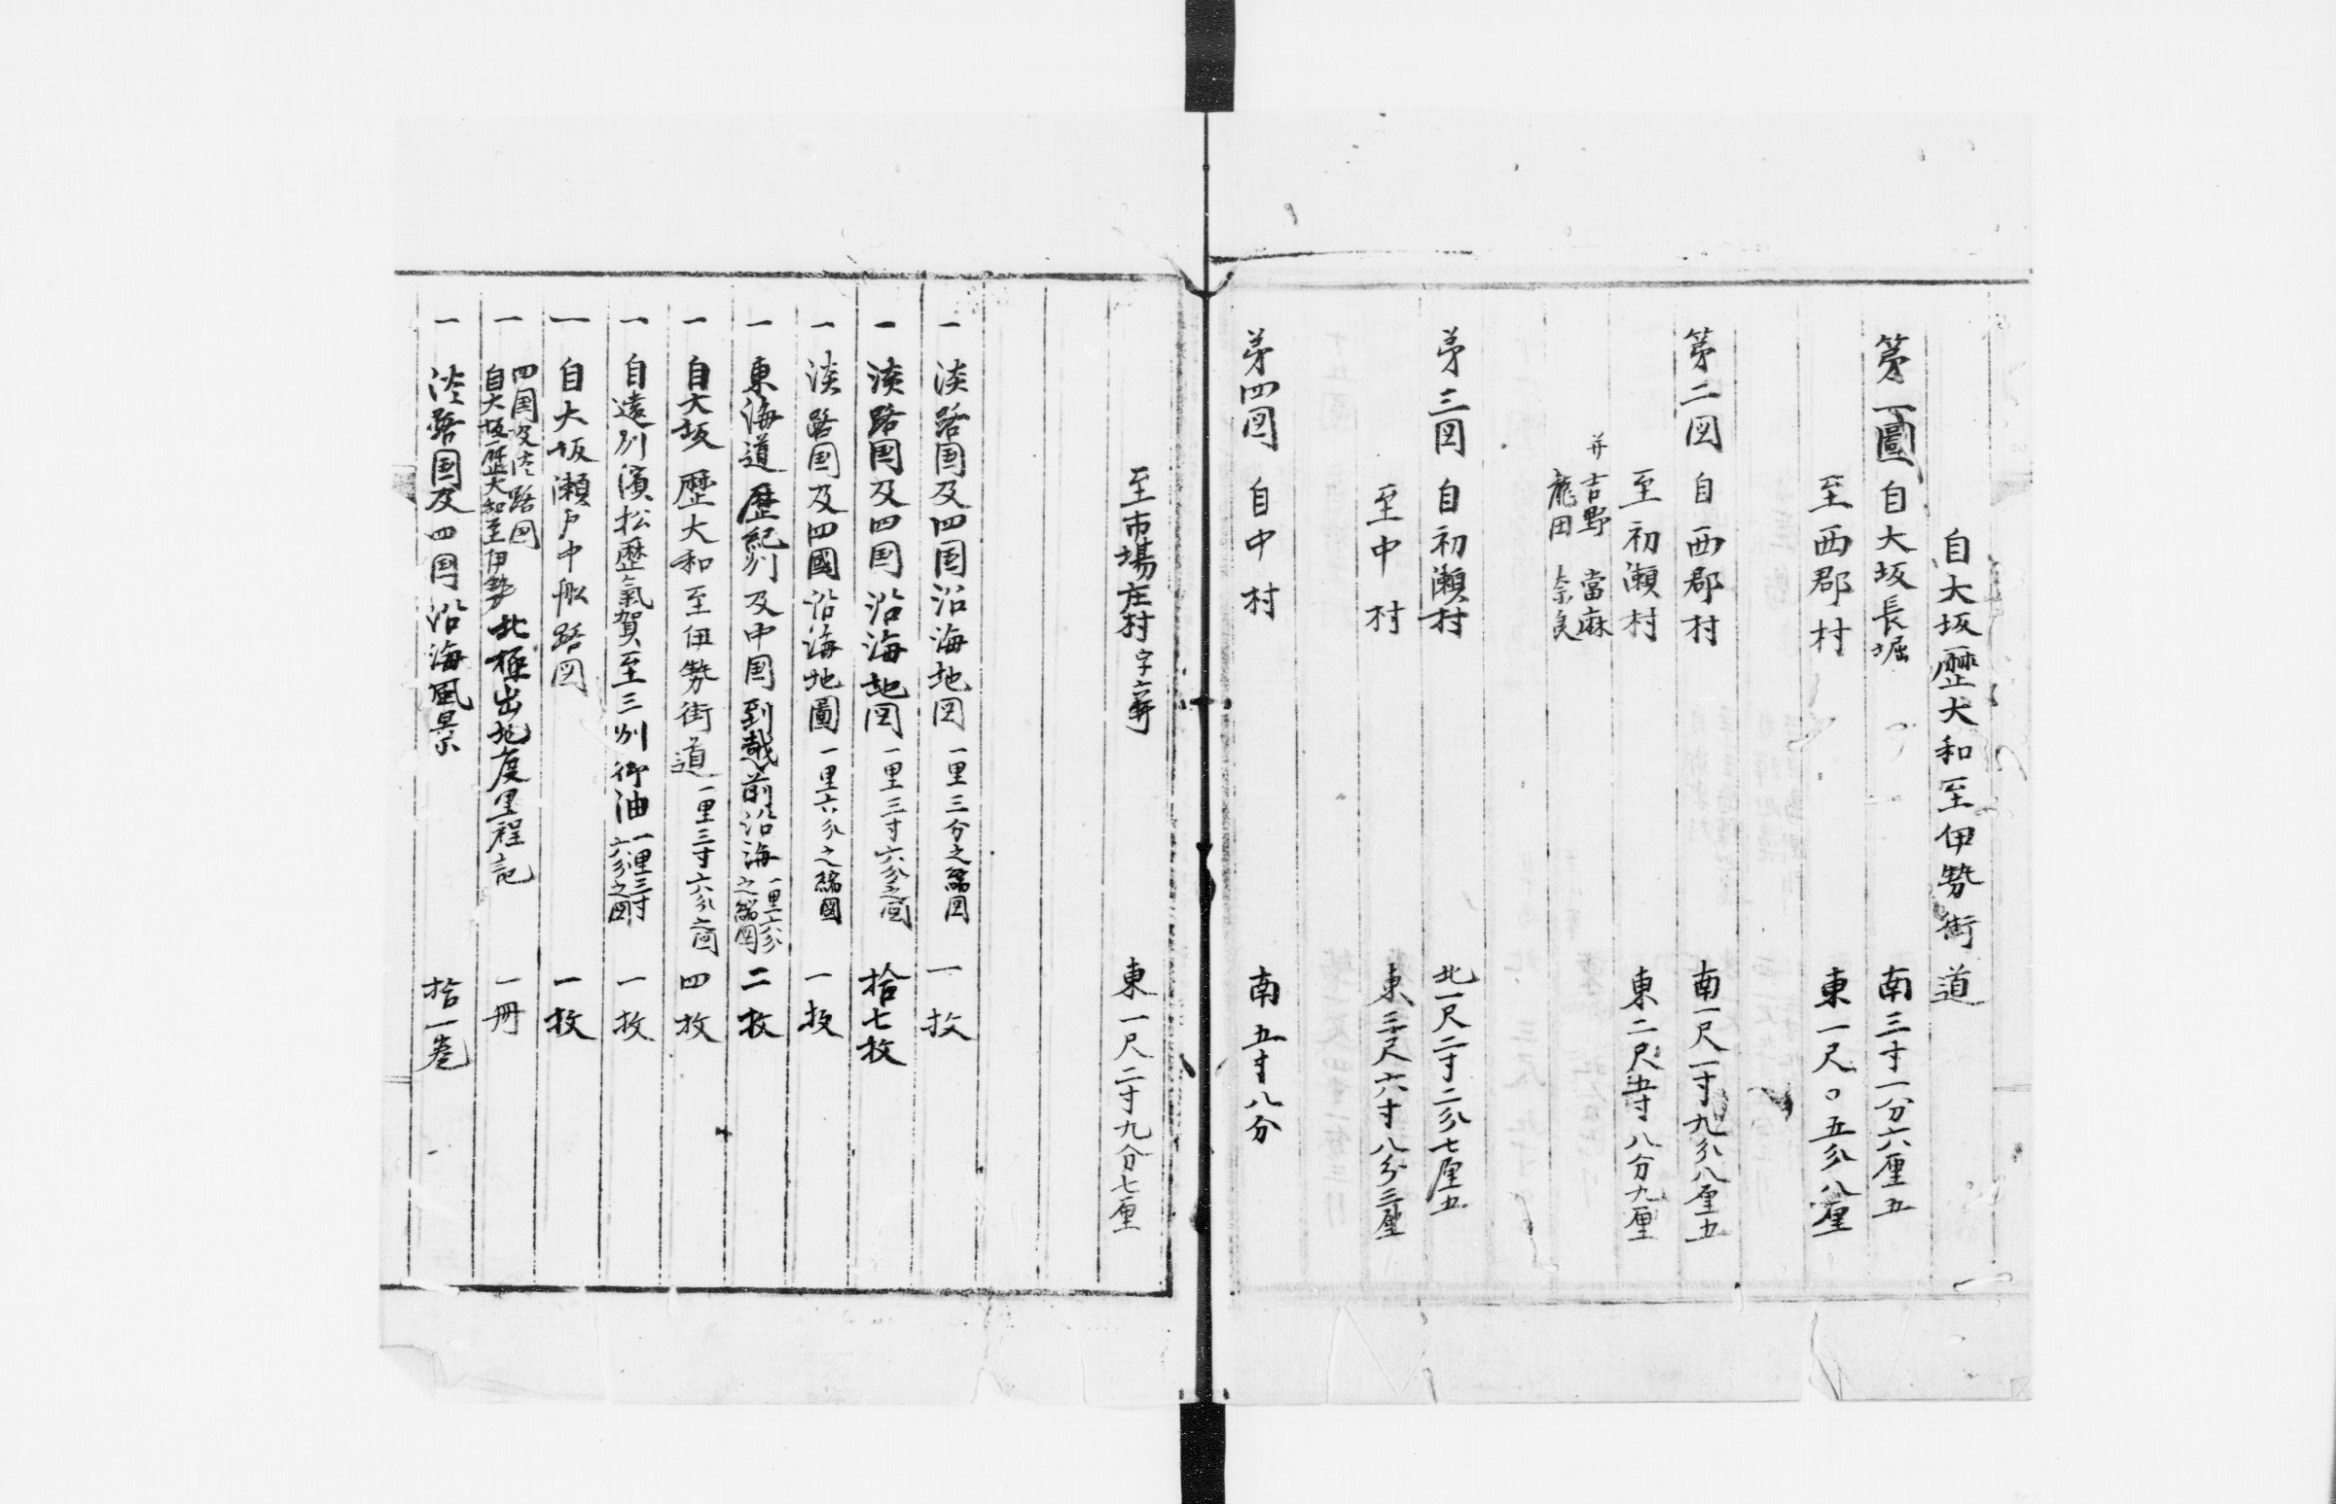 自大坂歴大和至伊勢街道
第一圖 自大坂長堀 南三寸一分六厘五
至西郡村 東一尺〇五分八厘
第二図 自西郡村 南一尺一寸九分八厘五
至初瀬村 東二尺五寸八分九厘
并吉野 當麻
龍田 奈良
第三図 自初瀬村 北一尺二寸二分七厘五
至中村 東三尺六寸八分三厘
第四図 自中村 南五寸八分
至市場庄村 東一尺二寸九分七厘
一 淡路国及四国沿海地図 一里三分之縮図 一枚
一 淡路国及四国沿海地図 一里三寸六分之図 拾七枚
一 淡路国及四國沿海地圖 一里六分之縮図 一枚
一 東海道歴紀州及中国到越前沿海 一里六分之縮図 二枚
一 自大坂歴大和至伊勢街道 一里三寸六分之図 四枚
一 自遠州濱松歴氣賀至三州御油 一里三寸六分之図 一枚
一 自大坂瀬戸中舩路図 一枚
一 四国及淡路図
自大坂歴大和至伊勢 北極出地度里程記 一冊
一 淡路国及四国沿海風景 拾一巻